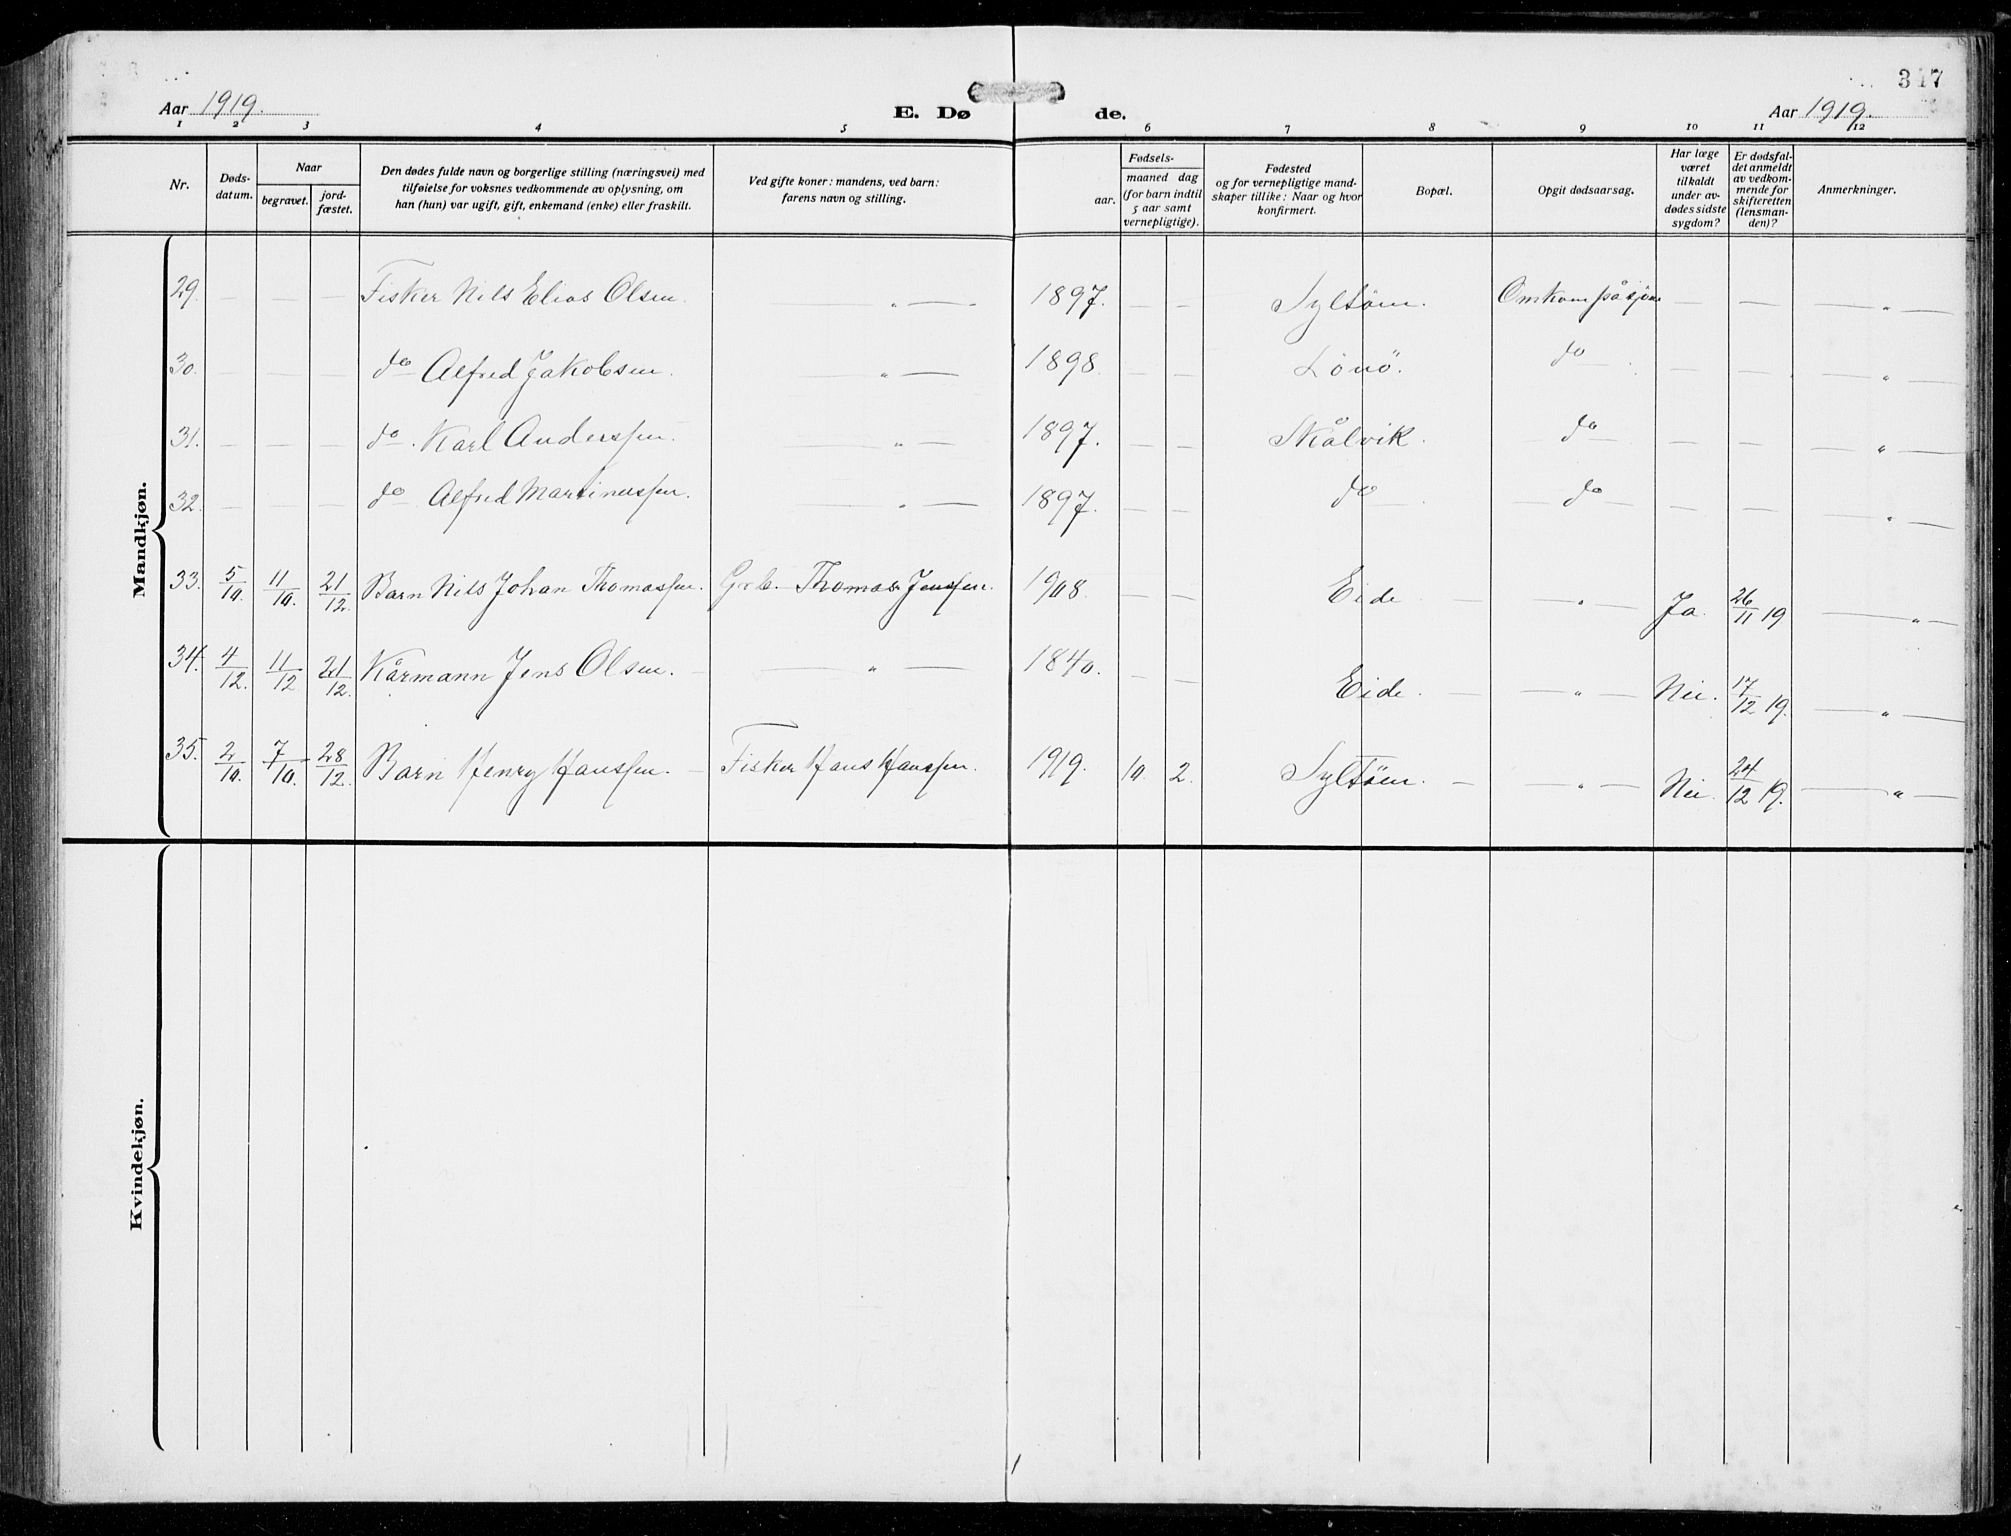 317
Aar 1919. E. Dø de. Aar 1919.
1 2 3 4 5 6 7 8 9 10 11 12
Nr. Døds-datum. Naar begravet. jord-fæstet. Den dødes fulde navn og borgerlige stilling (næringsvei) med tilføielse for voksnes vedkommende av oplysning, om han (hun) var ugift, gift, enkemand (enke) eller fraskilt. Ved gifte koner: mandens, ved barn: farens navn og stilling. Fødsels- aar. maaned dag (for barn indtil 5 aar samt vernepligtige). Fødested og for vernepligtige mand-skaper tillike: Naar og hvor konfirmert. Bopæl. Opgit dødsaarsag. Har læge været tilkaldt under av-dødes sidste sygdom? Er dødsfal-det anmeldt av vedkom-mende for skifteretten (lensman-den)? Anmerkninger.
Mandkjøn.
29. — — — Fisker Nils Elias Olsen. — " — 1897. — — Syltöm. Omkom på sjöen — — — " —
30. — — — do Alfred Jakobsen. — " — 1898. — — Lönö. do — — — — " —
31. — — — do. Karl Anderssen. — " — 1897. — — Skålvik. do — — — — " —
32. — — — do Alfred Martinussen. — " — 1897. — — do — do — — — — " —
33. 5/10. 11/10. 21/12. Barn Nils Johan Thomassen. Grb. Thomas Jenssen. 1908. — — Eide. — — " — Ja. 26/11 19 — " —
34. 4/12. 11/12 21/12. Kårmann Jens Olsen. — — " — 1840. — — Eide. — — " — Nei. 17/12 19. — " —
35. 2/10. 7/10. 28/12. Barn Henry Hanssen. — Fisker Hans Hanssen. 1919. 10. 2. Syltöm. — — " — Nei. 24/12 19. — " —
Kvindekjøn.